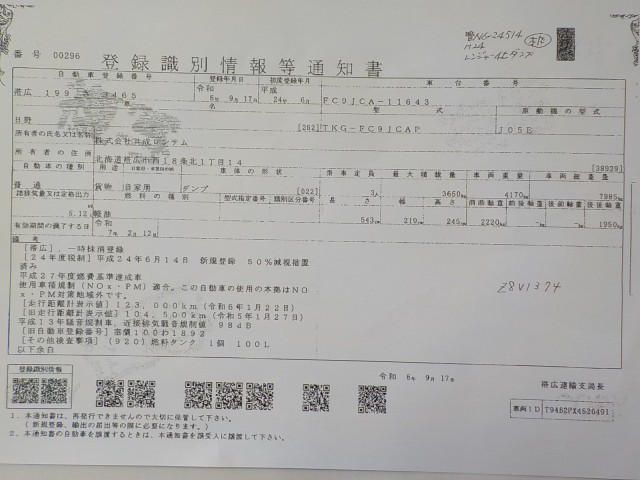 H24
レンジャー4tダンプ
番号 00296
登録識別情報等通知書
自動車登録番号 登録年月日 初度登録年月 車台番号
帯広 199 3465 令和 6年 9月17日 平成 24年 6月 FC9JCA-11643
型式 原動機の型式
日野 [282] TKG-FC9JCAP J05E
所有者の氏名又は名称 株式会社共成レンテム
所有者の住所 北海道帯広市西18条北1丁目14 [38929]
自動車の種別 用途 自家用・事業用の別 車体の形状 乗車定員 最大積載量 車両重量 車両総重量
普通 貨物 自家用 ダンプ [022] 3人 3650kg 4170kg 7985kg
総排気量又は定格出力 燃料の種別 型式指定番号 類別区分番号 長さ 幅 高さ 前前軸重量 前後軸重量 後前軸重量 後後軸重量
5.12 軽油 543cm 219cm 245cm 2220kg -kg -kg 1950kg
有効期間の満了する日 令和 7年 2月12日
備考
[帯広],一時抹消登録
[24年度税制]平成24年6月14日 新規登録 50%減税措置
済み
平成27年度燃費基準達成車
使用車種規制(NOx・PM)適合。この自動車の使用の本拠はNO
x・PM対策地域外です。
[走行距離計表示値]123,000km(令和6年1月22日)
[旧走行距離計表示値]104,500km(令和5年1月27日)
平成13年騒音規制車、近接排気騒音規制値 98dB
[旧自動車登録番号]室蘭100わ1892
[その他検査事項](920)燃料タンク 1個 100L
以下余白
Z8V1374
令和 6年 9月17日
登録識別情報
帯広運輸支局長
車両ID T9452FX4520491
1.本通知書は、再発行できませんので大切に保管して下さい。
(新規登録、輸出の届出等の際に必要になります。)
2.本通知書の自動車を譲渡するときは、本通知書を譲受人に譲渡して下さい。